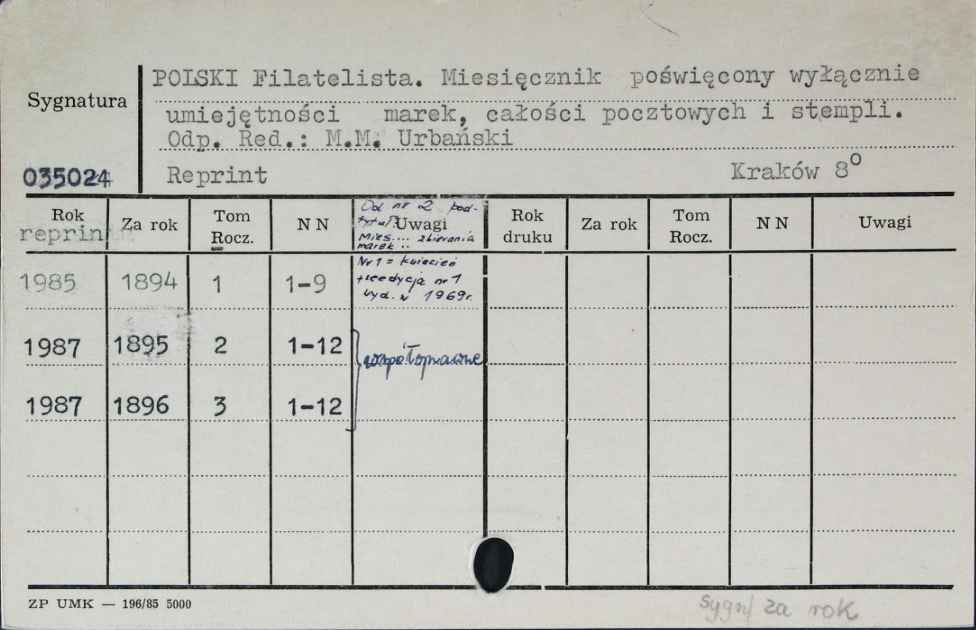 POLSKI Filatelista. Miesięcznik poświęcony wyłącznie
Sygnatura
umiejętności marek, całości pocztowych i stempli.
Odp. Red.: M.M. Urbański
035024 Reprint Kraków 8º
Rok reprin Za rok Tom Rocz. N N Uwagi Rok druku Za rok Tom Rocz. N N Uwagi
Od nr 2 pod-
tytuł:
Mies.... zbierania
marek ..
1985 1894 1 1-9
Nr 1 = kwiecień
+reedycja nr 1
wyd. w 1969r.
1987 1895 2 1-12
współoprawne
1987 1896 3 1-12
ZP UMK — 196/85 5000
sygn/ za rok